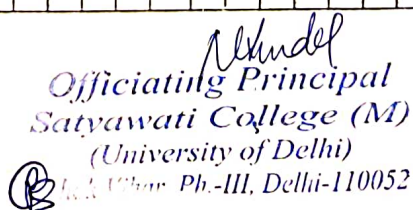 Officiating Principal
Satyawati College (M)
(University of Delhi)
Ph.-III, Delhi-110052